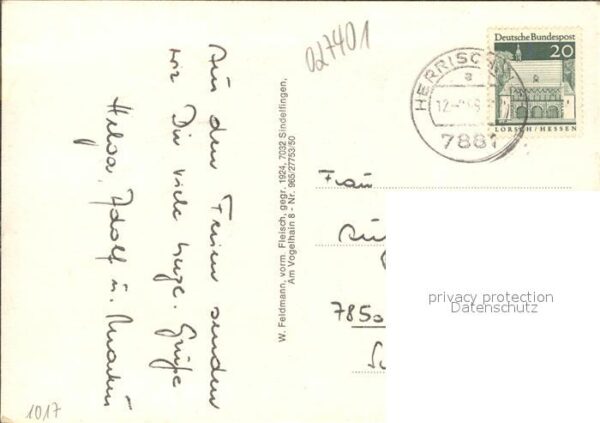 Aus den Ferien senden
wir Dir viele herzl. Grüße
Helga, Adolf u. Martin
W. Feldmann, vorm. Fleisch, gegr. 1924, 7032 Sindelfingen,
Am Vogelhain 8 - Nr. 965/27753/50
027401
HERRISCH
a
12.-
7881
Deutsche Bundespost
20
LORSCH/HESSEN
Frau
785
privacy protection
Datenschutz
1017